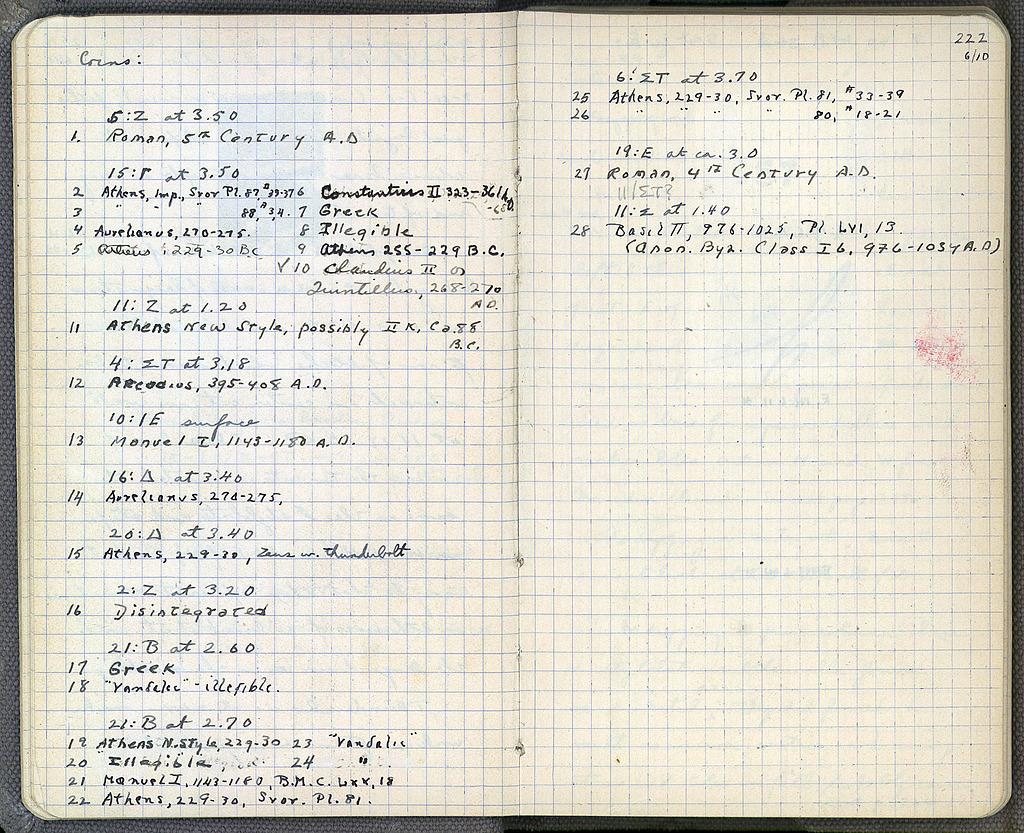 Coins:
5:Z at 3.50
1. Roman, 5th Century A.D
15:Γ at 3.50
2 Athens, Imp., Svor Pl. 87, #39-37 6 Constantius II 323-361 A.D.
3 " " " 88, #34. 7 Greek
4 Aurelianus, 270-275. 8 Illegible
5 Athens 229-30 B.C 9 Athens 255-229 B.C.
√10 Claudius II or
Quintillus, 268-270
A.D.
11:Z at 1.20
11 Athens New Style, possibly II K, Ca.88
B.C.
4:ΣT at 3.18
12 Arcadius, 395-408 A.D.
10:IE surface
13 Manuel I, 1143-1180 A.D.
16:Δ at 3.40
14 Aurelianus, 270-275.
20:Δ at 3.40
15 Athens, 229-30, Zeus w. thunderbolt
2:Z at 3.20
16 Disintegrated
21:B at 2.60
17 Greek
18 "Vandalic" - illegible.
21:B at 2.70
19 Athens N.Style, 229-30 23 "Vandalic"
20 Illegible 24 "
21 Manuel I, 1143-1180, B.M.C. LXX, 18
22 Athens, 229-30, Svor. Pl. 81.
222
6/10
6:ΣT at 3.70
25 Athens, 229-30, Svor. Pl. 81, #33-39
26 " " " " 80, #18-21
19:E at ca. 3.0
27 Roman, 4th Century A.D.
11/ΣT?
11:Σ at 1.40
28 Basil II, 976-1025, Pl. LVI, 13.
(Anon. Byz. Class I6, 976-1034 A.D)